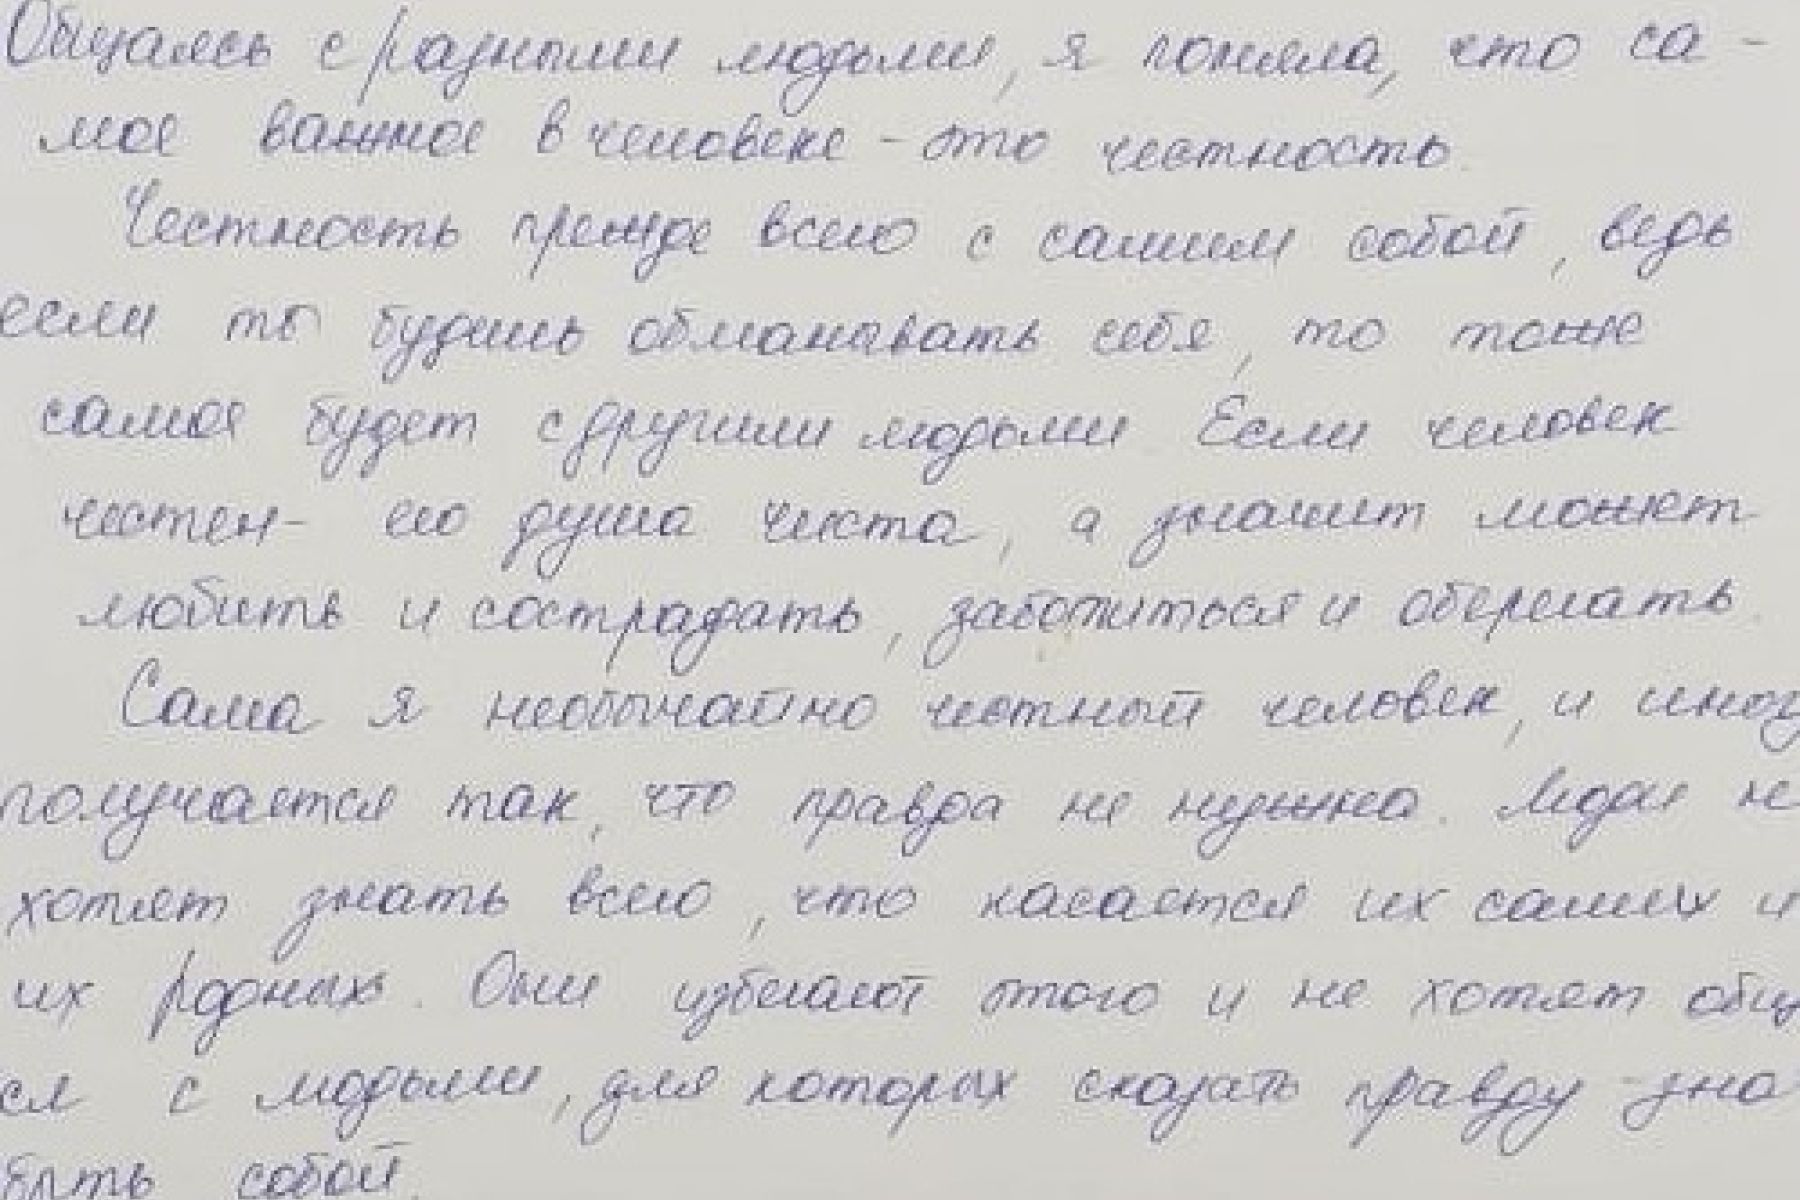 Общаясь с разными людьми, я поняла, что са-
мое важное в человеке - это честность.
Честность прежде всего с самим собой, ведь
если ты будешь обманывать себя, то тоже
самое будет с другими людьми. Если человек
честен - его душа чиста, а значит может
любить и сострадать, заботиться и оберегать.
Сама я необычайно честный человек, и иног
получается так, что правда не нужна. Люди не
хотят знать всего, что касается их самих и
их родных. Они избегают этого и не хотят общ
ся с людьми, для которых сказать правду - зна
быть собой.